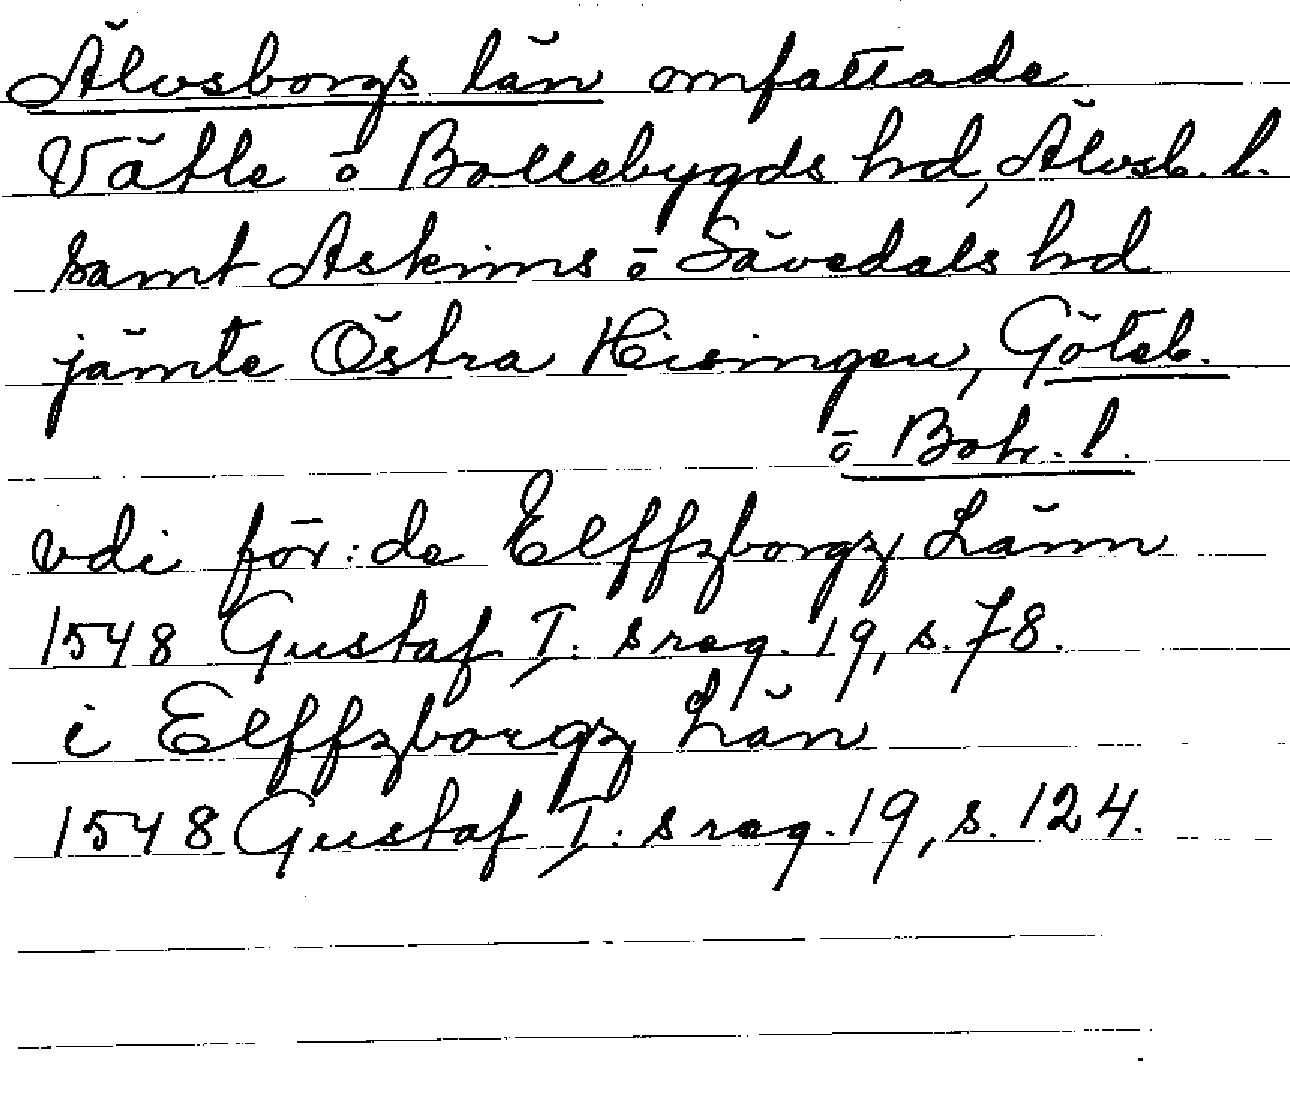 Älvsborgs län omfattade
Vätle o Bollebygds hd, Älvsb. l.
samt Askims o Sävedals hd
jämte Östra Hisingen, Göteb.
o Boh. l.
vdi för:de Elffzborgz Länn
1548 Gustaf I:s reg. 19, s. 78.
i Elffzborgz Län
1548 Gustaf I:s reg. 19, s. 124.